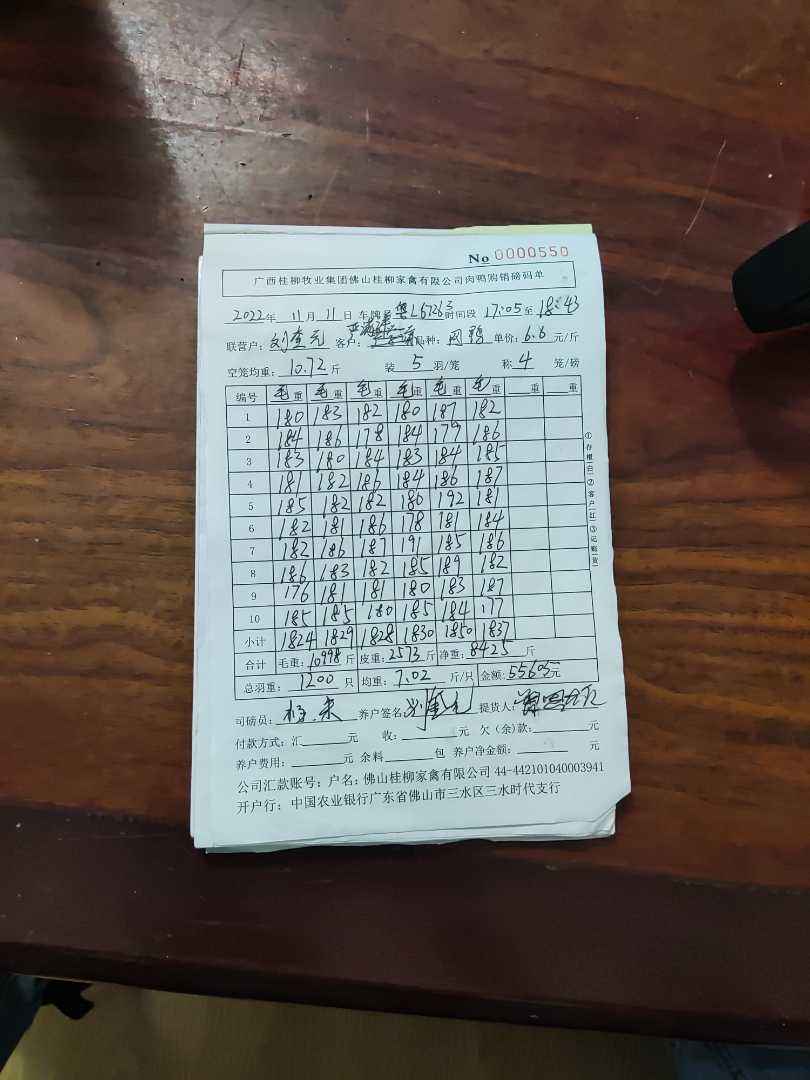 No 0000550
广西桂柳牧业集团佛山桂柳家禽有限公司肉鸭购销磅码单
2022年 11月 11日 车牌号 粤L67263 时间段 17:05至 18:43
联营户: 刘奎元 客户: 品种: 单价: 6.6 元/斤
空笼均重: 10.72 斤 装 5 羽/笼 称 4 笼/磅
编号 毛重 毛重 毛重 毛重 毛重 毛重 重 重
1 180 183 182 180 187 182
2 184 186 178 184 179 186
3 183 180 184 183 184 185
4 181 182 186 184 186 187
5 185 182 182 180 192 181
6 182 181 186 178 181 184
7 182 186 187 191 185 186
8 186 183 182 185 189 182
9 176 181 181 180 183 187
10 185 185 180 185 184 177
小计 1824 1829 1828 1830 1850 1837
合计 毛重: 10998 斤 皮重: 2573 斤 净重: 8425 斤
总羽重: 1200 只 均重: 7.02 斤/只 金额: 55605元
司磅员: 养户签名: 刘奎元 提货人:
付款方式: 汇 元 收: 元 欠(余)款: 元
养户费用: 元 余料 包 养户净金额: 元
公司汇款账号: 户名: 佛山桂柳家禽有限公司 44-442101040003941
开户行: 中国农业银行广东省佛山市三水区三水时代支行
①存根(白)②客户(红)③记账(黄)